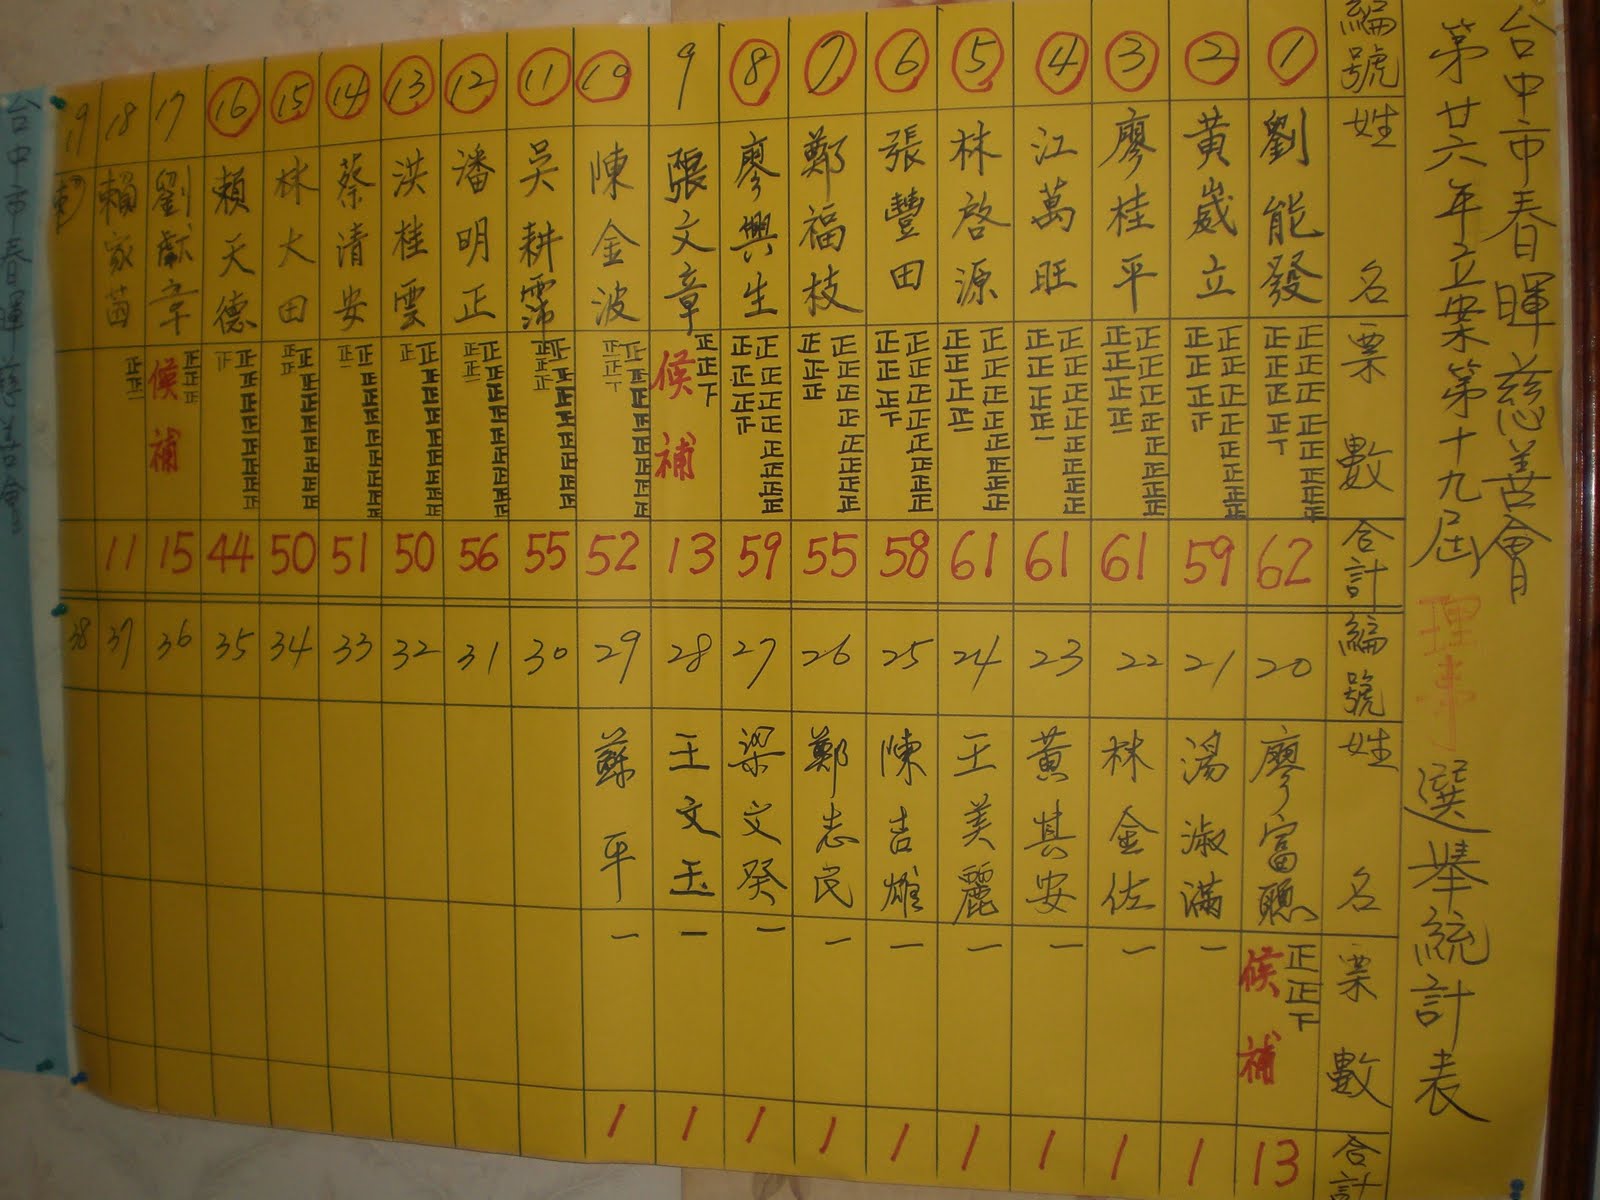 台中市春暉慈善會
第廿六年立案第十九屆理事選舉統計表
編號 姓名 票數 合計
1 劉能發 正正正正正正正正正正正正丅 62
2 黃崴立 59
3 廖桂平 61
4 江萬旺 61
5 林啓源 61
6 張豐田 58
7 鄭福枝 55
8 廖興生 59
9 張文章 正正下 候補 13
10 陳金波 52
11 吳耕霈 55
12 潘明正 56
13 洪桂雲 50
14 蔡清安 51
15 林大田 50
16 賴天德 44
17 劉獻章 正正正 候補 15
18 賴家茵 正正一 11
19
編號 姓名 票數 合計
20 廖富聰 正正下 候補 13
21 湯淑滿 一 1
22 林金佐 一 1
23 黃其安 一 1
24 王美麗 一 1
25 陳吉雄 一 1
26 鄭志良 一 1
27 梁文癸 一 1
28 王文玉 一 1
29 蘇平 一 1
30
31
32
33
34
35
36
37
38
台中市春暉慈善會